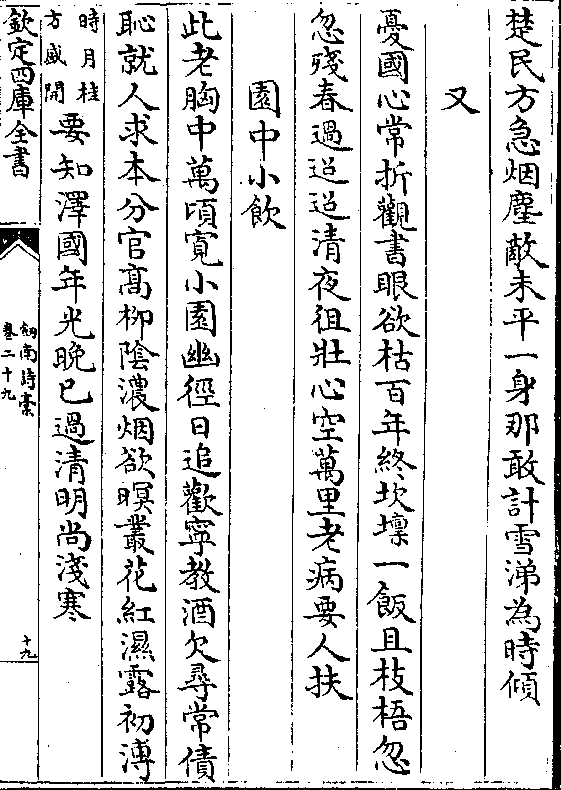 楚民方急烟塵敵未平一身那敢計雪涕為時傾
又
憂國心常折觀書眼欲枯百年終坎壈一飯且枝梧忽
忽殘春過迢迢清夜徂壯心空萬里老病要人扶
園中小飲
此老胸中萬頃寛小園幽徑日追歡寧教酒欠尋常債
恥就人求本分官髙柳隂濃烟欲暝叢花紅濕露初漙
時月桂
方盛開
要知澤國年光晚已過清明尚淺寒
欽定四庫全書
劍南詩稾
卷二十九
十九